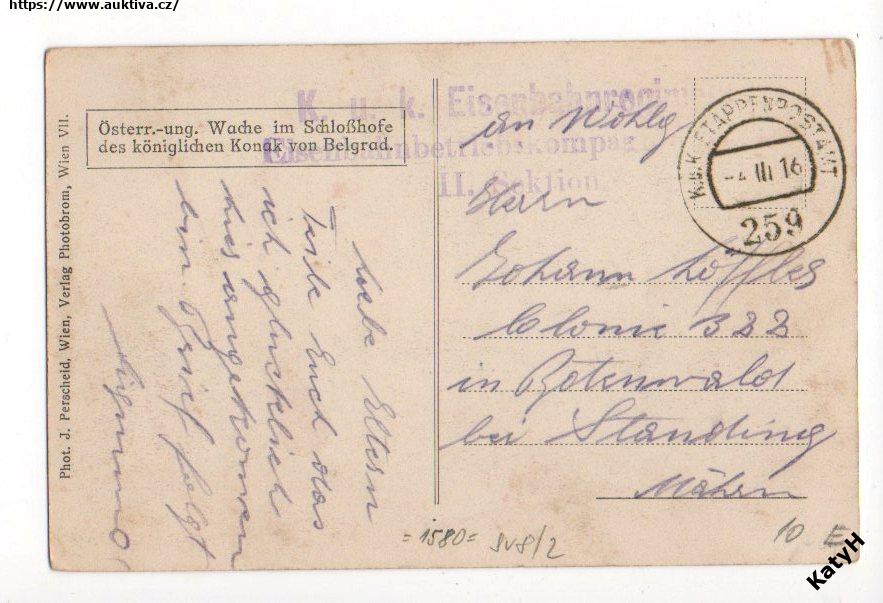 https://www.auktiva.cz/
Österr.-ung. Wache im Schloßhofe
des königlichen Konak von Belgrad.
Phot. J. Perscheid, Wien, Verlag Photobrom, Wien VII.
Liebe Eltern
Teile Euch das
ich glücklich
hier angekomen
bin Brief folgt
Sigmund
K. u. k. Eisenbahnregiment
Eisenbahnbetriebskompagnie
II. Sektion
K.u.K. ETAPPENPOSTAMT
-4 III 16
259
an
Herrn
Johann Löffler
Colonie 322
in Botenwald
bei Standing
Mähren
=1580=
10 E
KatyH